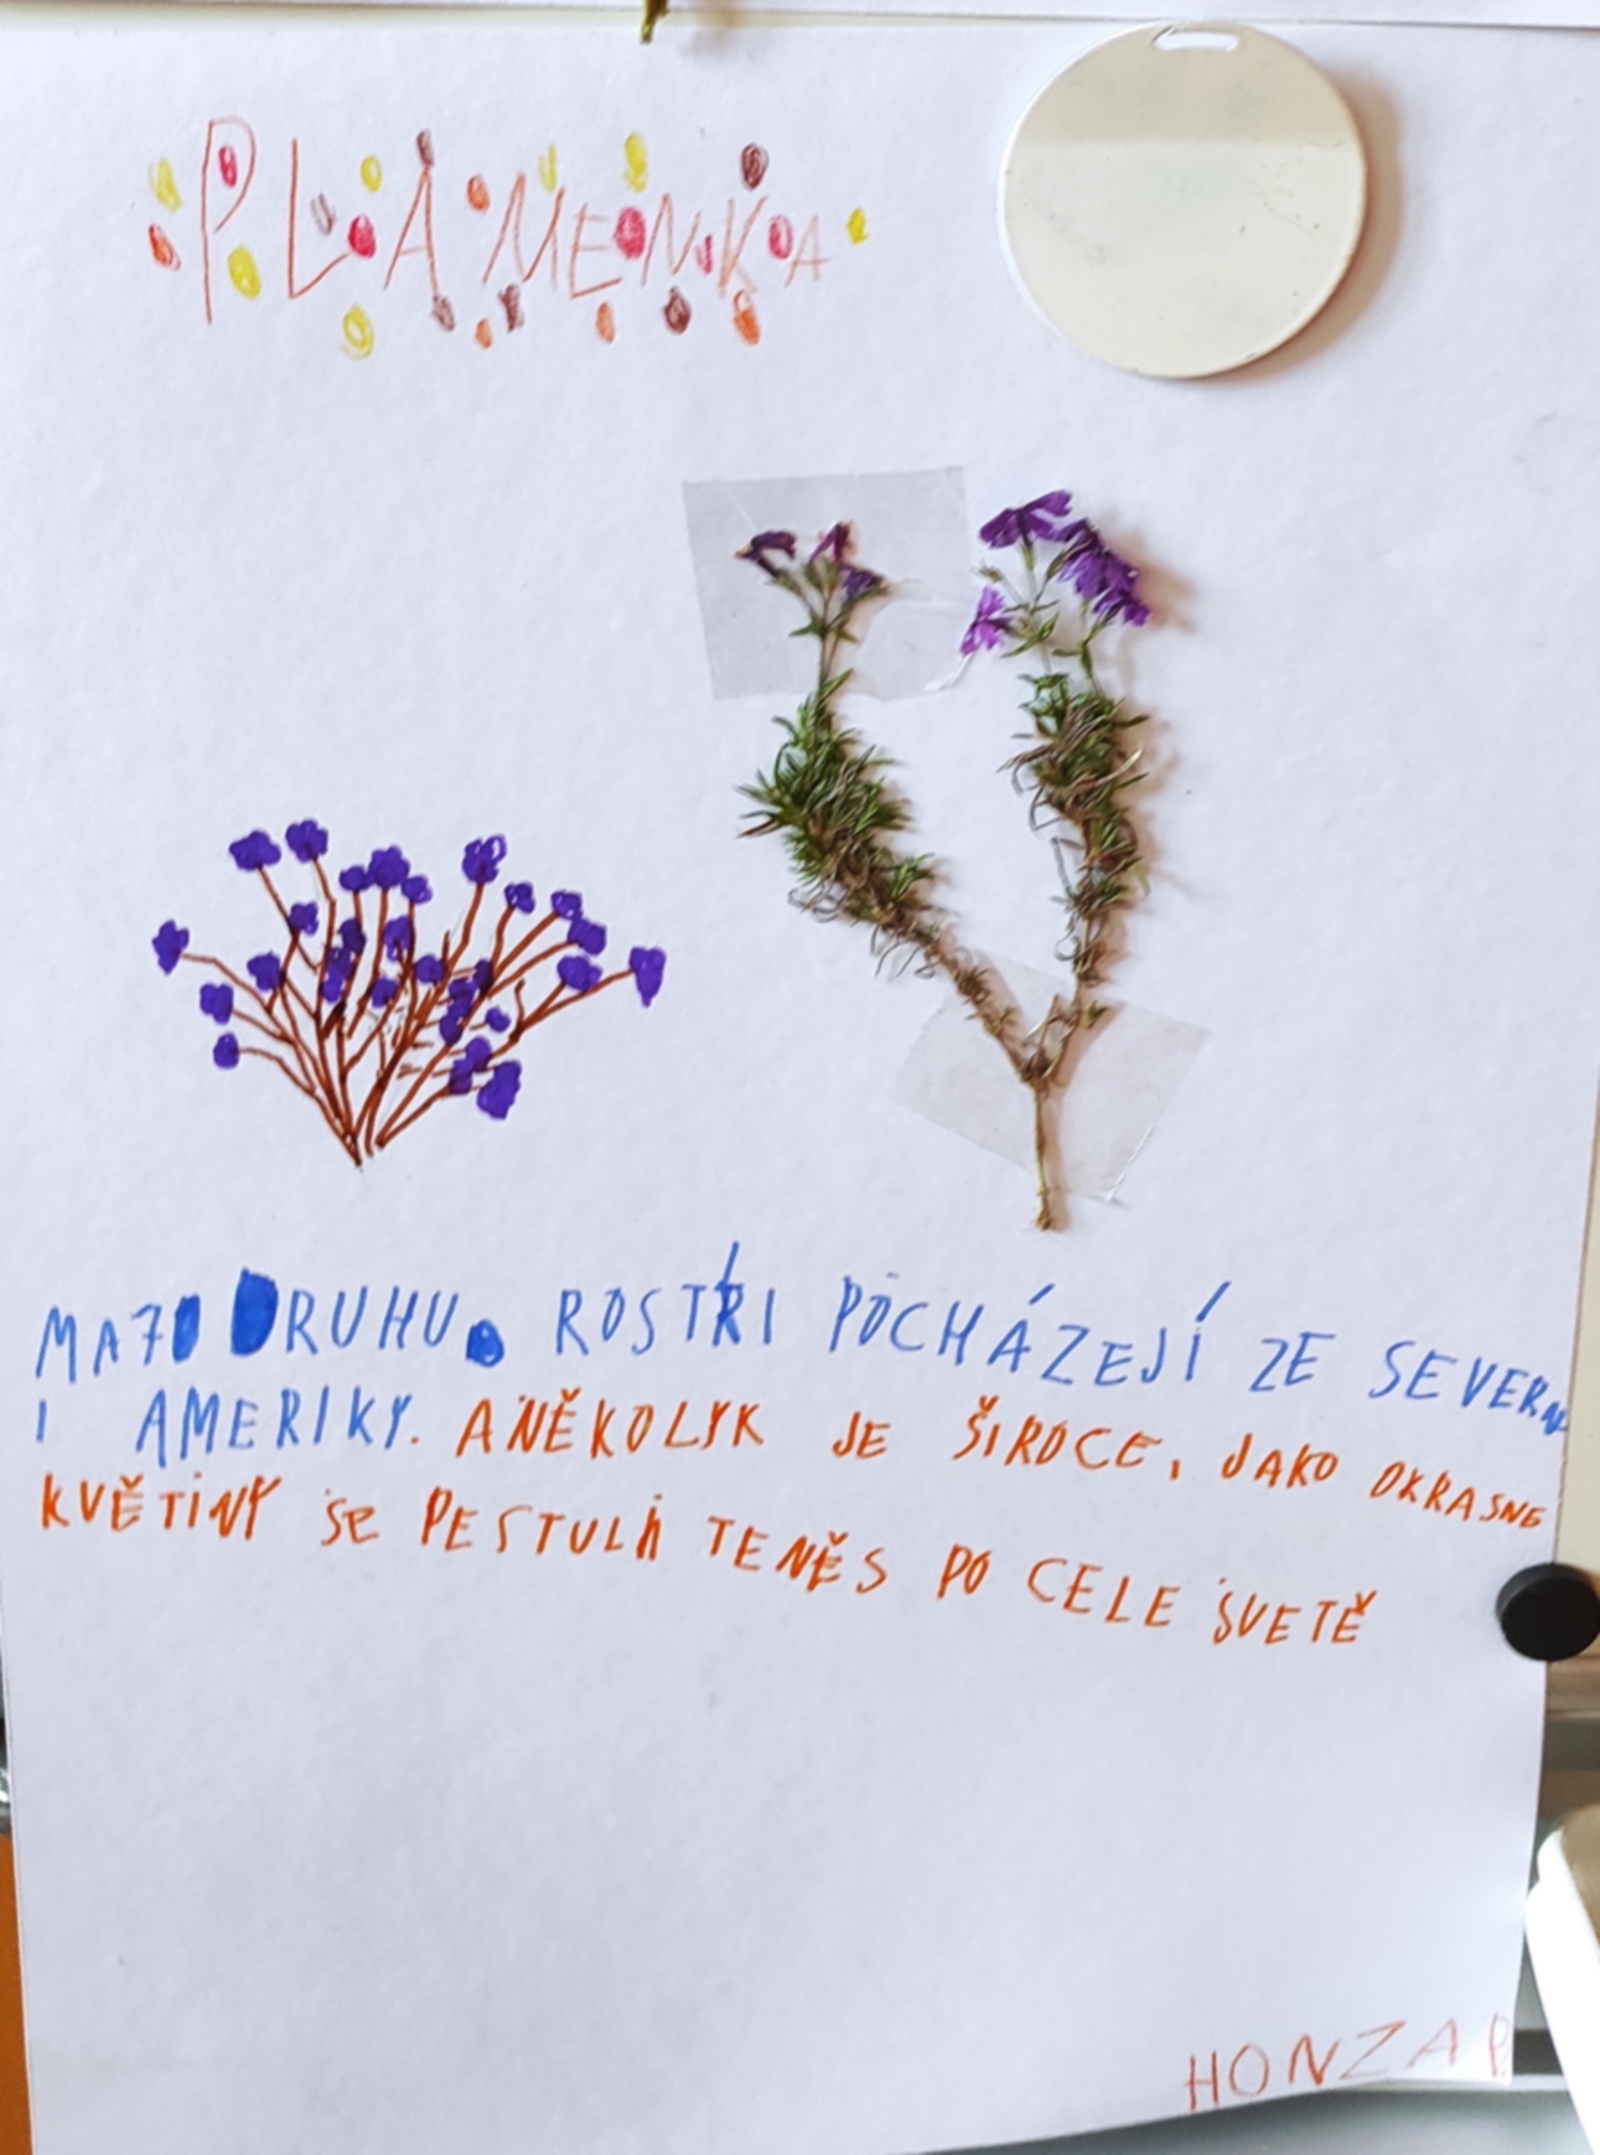 PLAMENKA
MA 70 DRUHU. ROSTŘI POCHÁZEJÍ ZE SEVERNI
I AMERIKY. A NĚKOLYK JE ŠIROCE, JAKO OKRASNE
KVĚTINY SE PESTUJI TENĚS PO CELE SVETĚ
HONZA P.